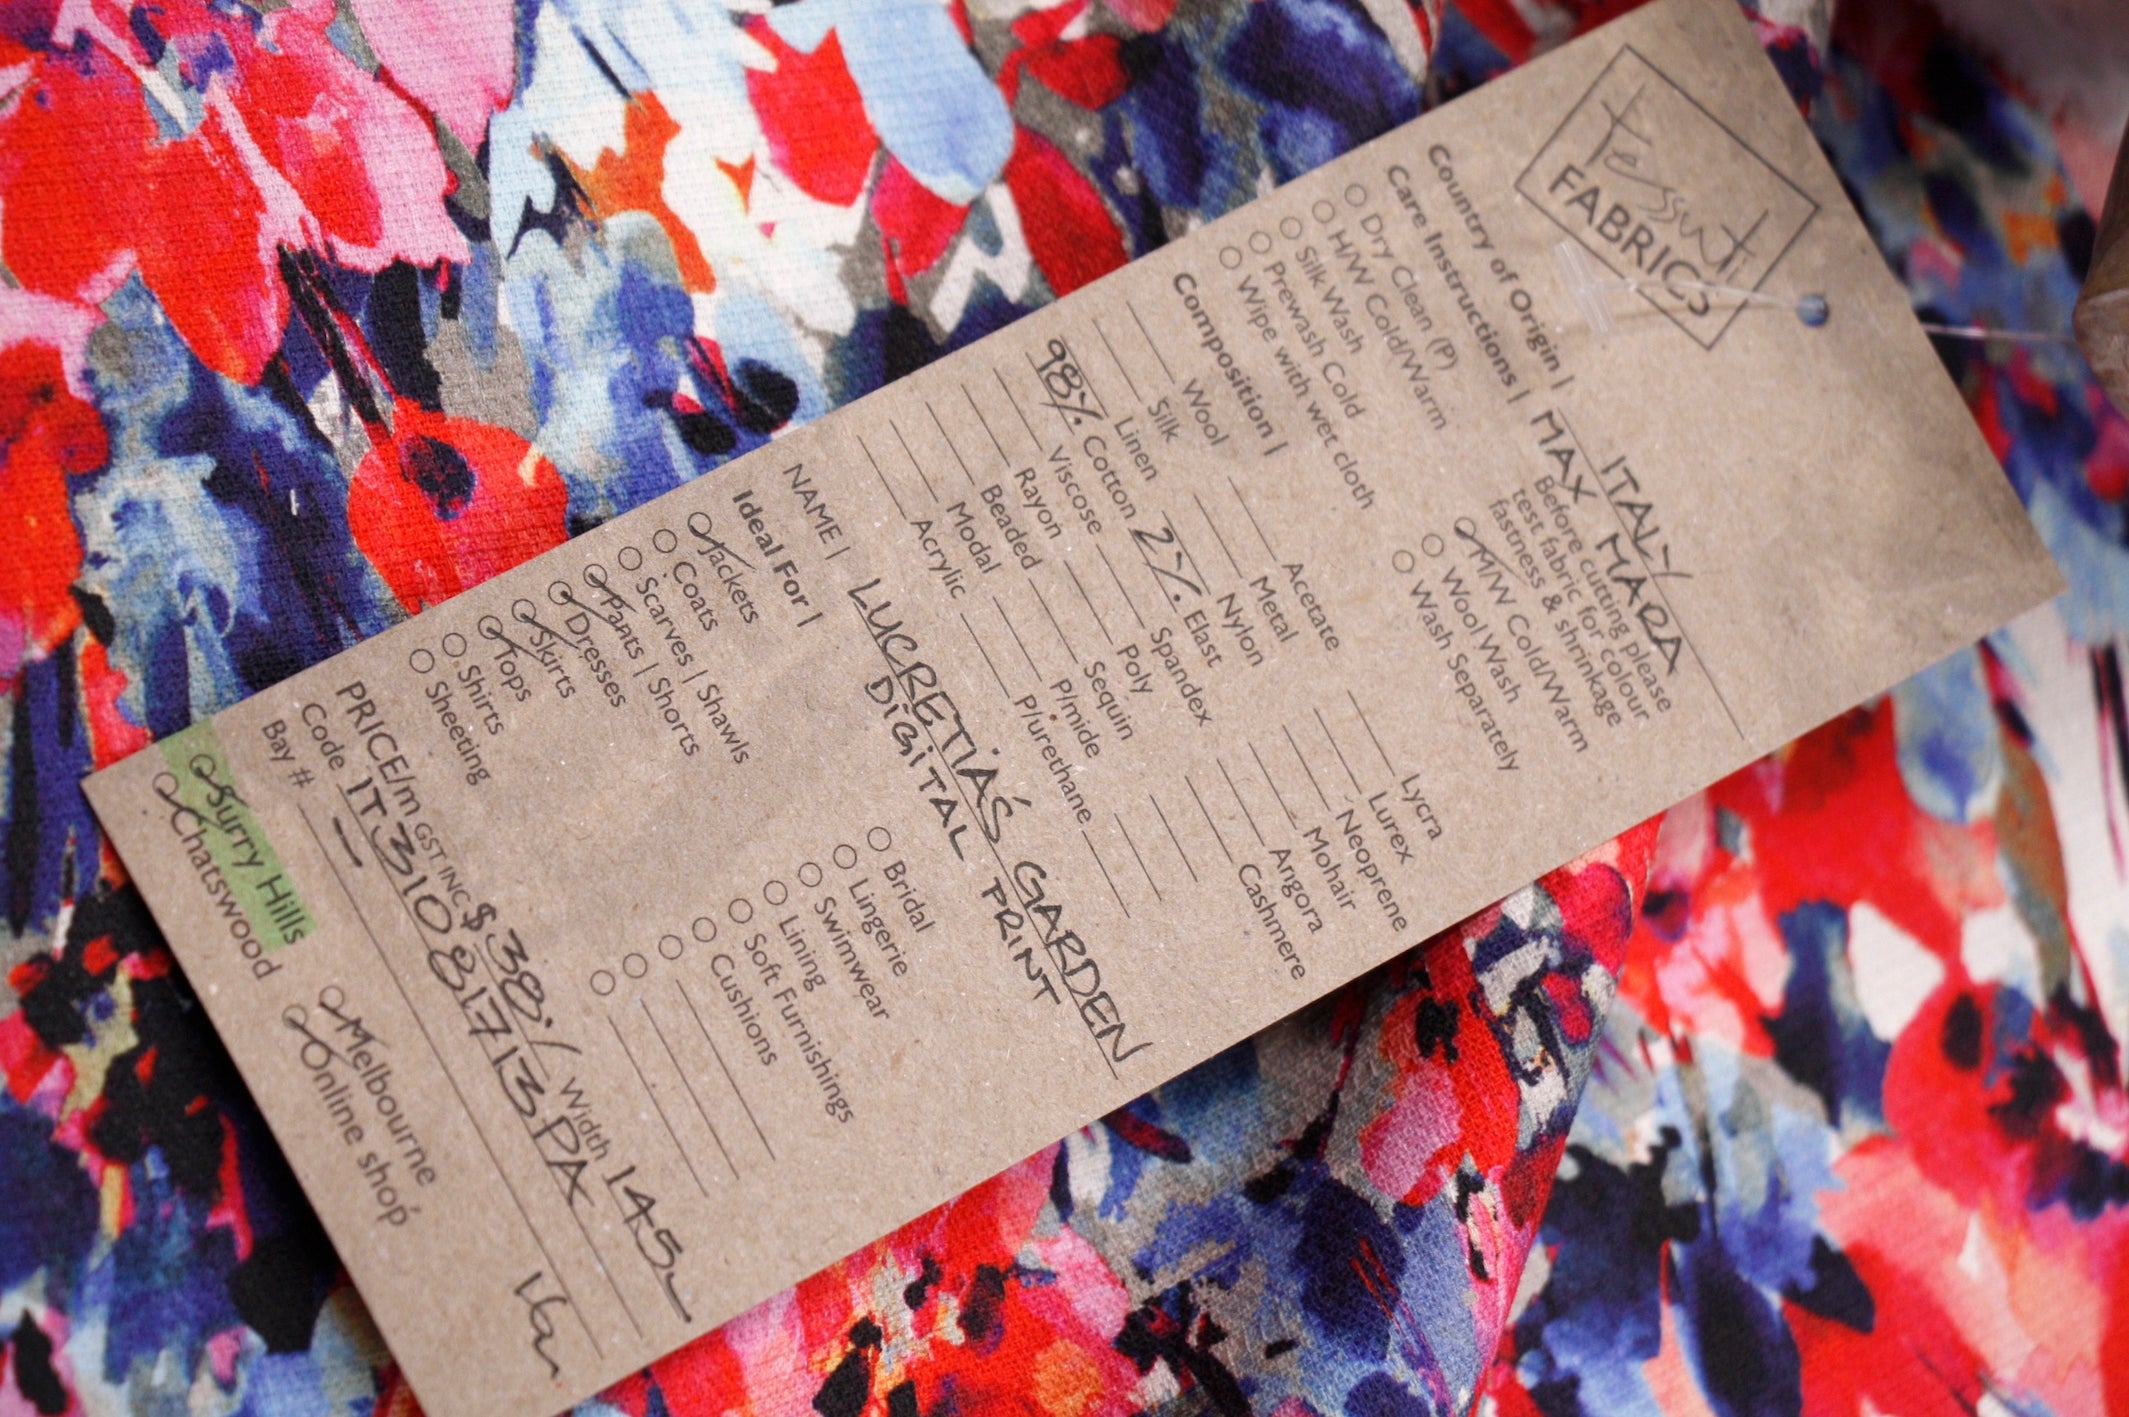 tessuti
FABRICS
Country of Origin | ITALY
MAX MARA
Care Instructions |
Dry Clean (P)
H/W Cold/Warm
Silk Wash
Prewash Cold
Wipe with wet cloth
Before cutting please
test fabric for colour
fastness & shrinkage
M/W Cold/Warm
Wool Wash
Wash Separately
Composition |
Wool
Silk
Linen
98% Cotton
Viscose
Rayon
Beaded
Modal
Acrylic
Acetate
Metal
Nylon
2% Elast
Spandex
Poly
Sequin
P/mide
P/urethane
Lycra
Lurex
Neoprene
Mohair
Angora
Cashmere
NAME | LUCRETIA'S GARDEN
DIGITAL PRINT
Ideal For |
Jackets
Coats
Scarves | Shawls
Pants | Shorts
Dresses
Skirts
Tops
Shirts
Sheeting
Bridal
Lingerie
Swimwear
Lining
Soft Furnishings
Cushions
PRICE/m GST INC $38./ Width 145
Code IT310 81713PA
Bay # —
Surry Hills
Chatswood
Melbourne
Online shop